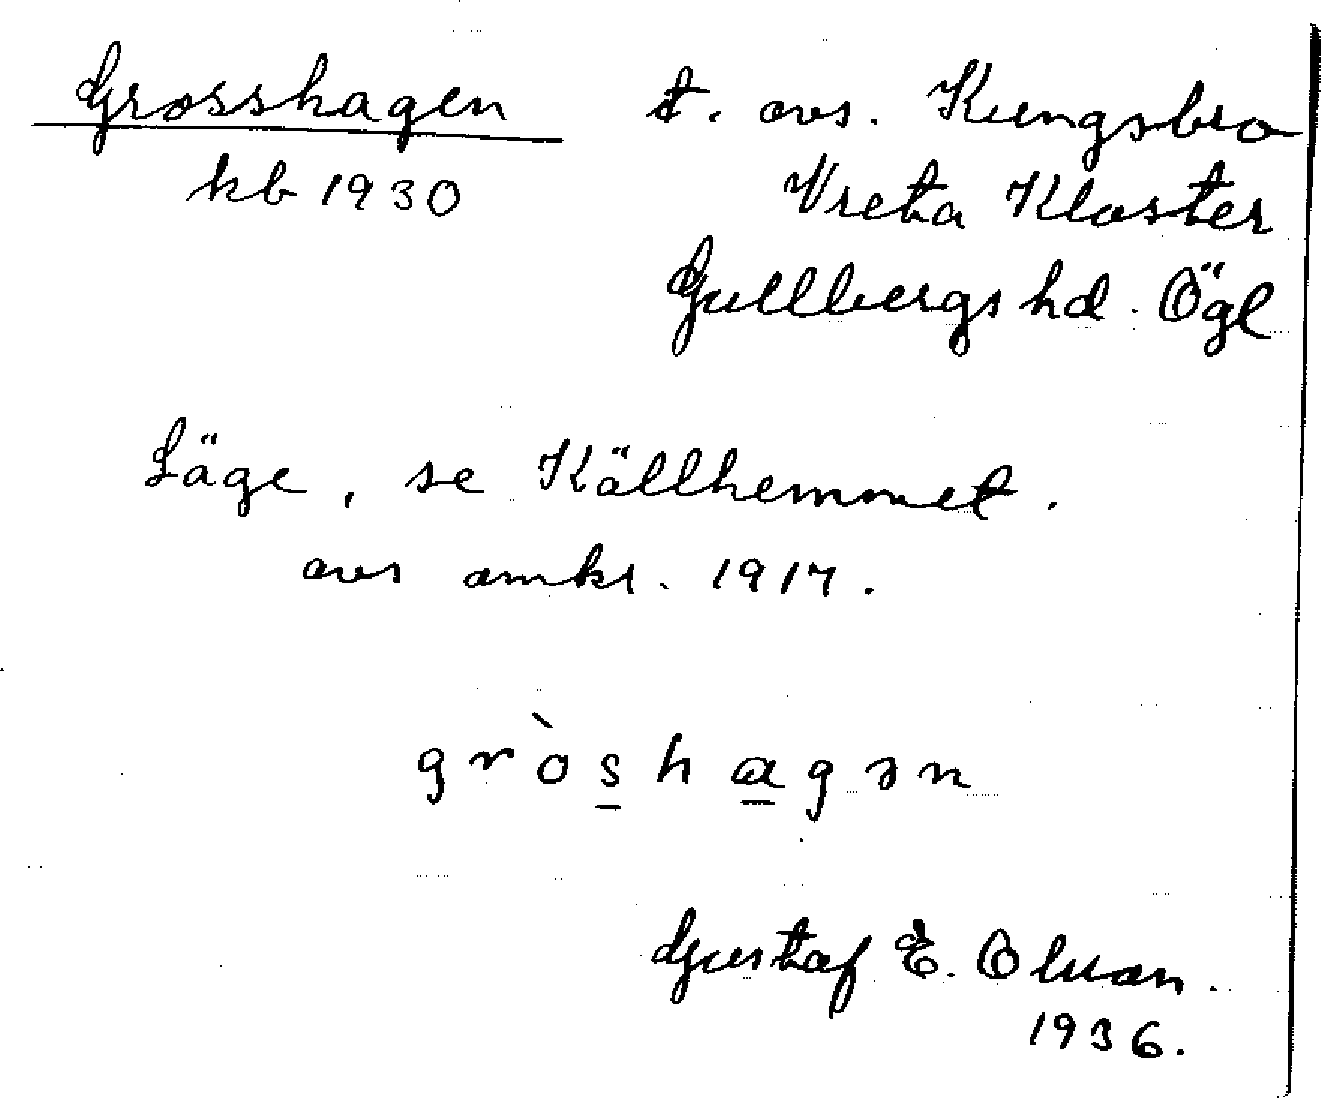 Grosshagen t. avs. Kungsbro
kb 1930 Vreta Kloster
Gullbergs hd. Ögl
Läge, se Källhemmet.
avs omkr. 1917.
gròshagən
Gustaf E. Olson.
1936.